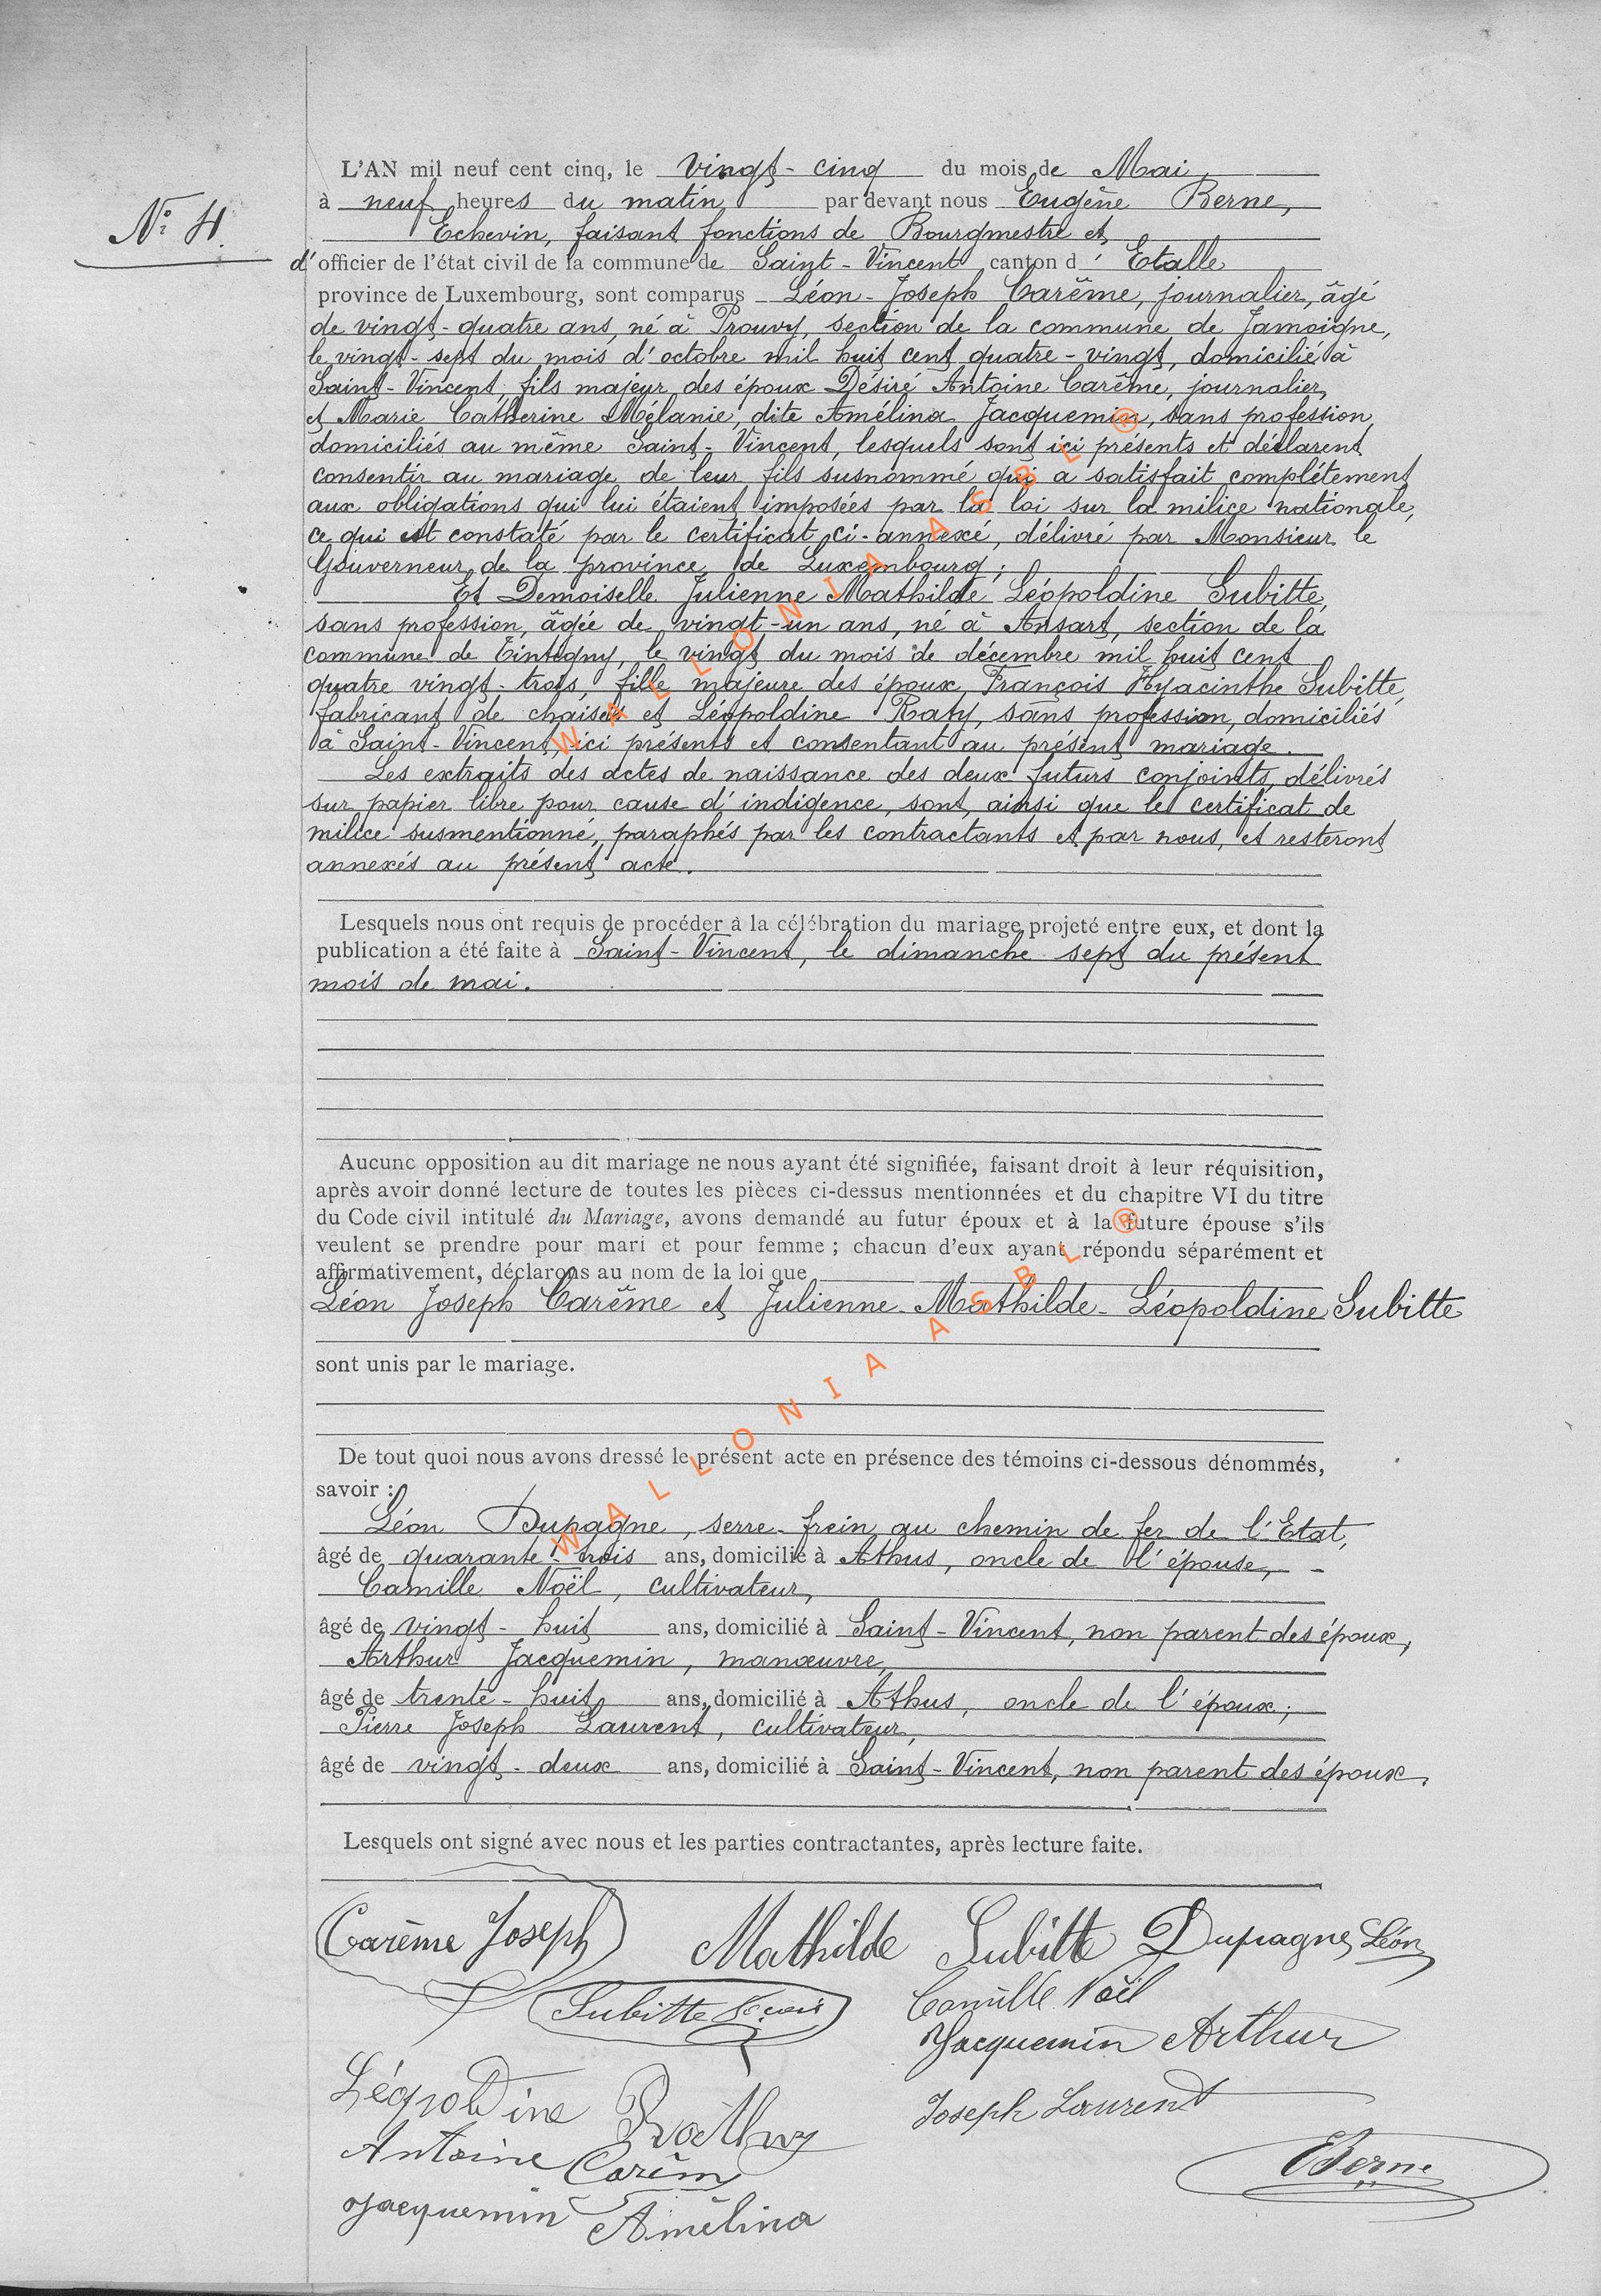 L'AN mil neuf cent cinq, le vingt-cinq du mois de Mai
à neuf heures du matin par devant nous Eugène Berne,
Echevin, faisant fonctions de Bourgmestre et
N° 4.
d'officier de l'état civil de la commune de Saint-Vincent canton d'Etalle
province de Luxembourg, sont comparus Léon-Joseph Carême, journalier, âgé
de vingt-quatre ans, né à Prouvy, section de la commune de Jamoigne,
le vingt-sept du mois d'octobre mil huit cent quatre-vingt, domicilié à
Saint-Vincent, fils majeur des époux Désiré Antoine Carême, journalier,
et Marie Catherine Mélanie, dite Amélina Jacquemin, sans profession,
domiciliés au même Saint-Vincent, lesquels sont ici présents et déclarent
consentir au mariage de leur fils susnommé qui a satisfait complétement
aux obligations qui lui étaient imposées par la loi sur la milice nationale,
ce qui est constaté par le certificat ci-annexé, délivré par Monsieur le
Gouverneur de la province de Luxembourg;
Et Demoiselle Julienne Mathilde Léopoldine Subitte,
sans profession, âgée de vingt-un ans, né à Ansart, section de la
commune de Tintigny, le vingt du mois de décembre mil huit cent
quatre vingt-trois, fille majeure des époux François Hyacinthe Subitte,
fabricant de chaises et Léopoldine Raty, sans profession, domiciliés
à Saint-Vincent, ici présents et consentant au présent mariage.
Les extraits des actes de naissance des deux futurs conjoints, délivrés
sur papier libre pour cause d'indigence, sont, ainsi que le certificat de
milice susmentionné, paraphés par les contractants et par nous, et resteront
annexés au présent acte.
Lesquels nous ont requis de procéder à la célébration du mariage projeté entre eux, et dont la
publication a été faite à Saint-Vincent, le dimanche sept du présent
mois de mai.
Aucune opposition au dit mariage ne nous ayant été signifiée, faisant droit à leur réquisition,
après avoir donné lecture de toutes les pièces ci-dessus mentionnées et du chapitre VI du titre
du Code civil intitulé du Mariage, avons demandé au futur époux et à la future épouse s'ils
veulent se prendre pour mari et pour femme ; chacun d'eux ayant répondu séparément et
affirmativement, déclarons au nom de la loi que
Léon Joseph Carême et Julienne-Mathilde-Léopoldine Subitte
sont unis par le mariage.
De tout quoi nous avons dressé le présent acte en présence des témoins ci-dessous dénommés,
savoir :
Léon Dupagne, serre-frein au chemin de fer de l'Etat,
âgé de quarante-trois ans, domicilié à Athus, oncle de l'épouse,
Camille Noël, cultivateur,
âgé de vingt-huit ans, domicilié à Saint-Vincent, non parent des époux,
Arthur Jacquemin, manœuvre,
âgé de trente-huit ans, domicilié à Athus, oncle de l'époux;
Pierre Joseph Laurent, cultivateur,
âgé de vingt-deux ans, domicilié à Saint-Vincent, non parent des époux.
Lesquels ont signé avec nous et les parties contractantes, après lecture faite.
Carème Joseph Mathilde Subitte Dupagne Léon
Subitte Fçois Camille Noël
Jacquemin Arthur
Léopoldine Rathy Joseph Laurent
Antoine Carêm EBerne
Jacquemin Amélina
WALLONIA ASBL ®
WALLONIA ASBL ®